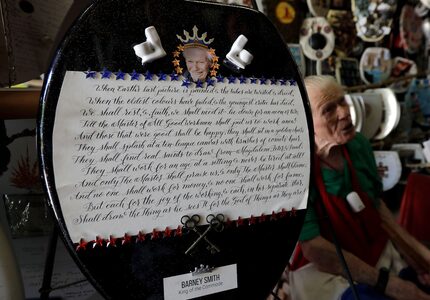 When Earth's last picture is painted, & the tubes are twisted & dried,
When the oldest colours have faded, & the youngest critic has died,
We shall rest, &, faith, we shall need it - lie down for an aeon or two,
Till the Master of All Good Workmen shall put us to work anew!
And those that were good shall be happy; they shall sit in a golden chair;
They shall splash at a ten-league canvas with brushes of comets' hair;
They shall find real saints to draw from - Magdalene, Peter, & Paul;
They shall work for an age at a sitting & never be tired at all!
And only the Master shall praise us, & only the Master shall blame;
And no one shall work for money, & no one shall work for fame,
But each for the joy of the working, & each, in his separate star,
Shall draw the thing as he sees It for the God of Things as They are!
BARNEY SMITH
King of the Commode